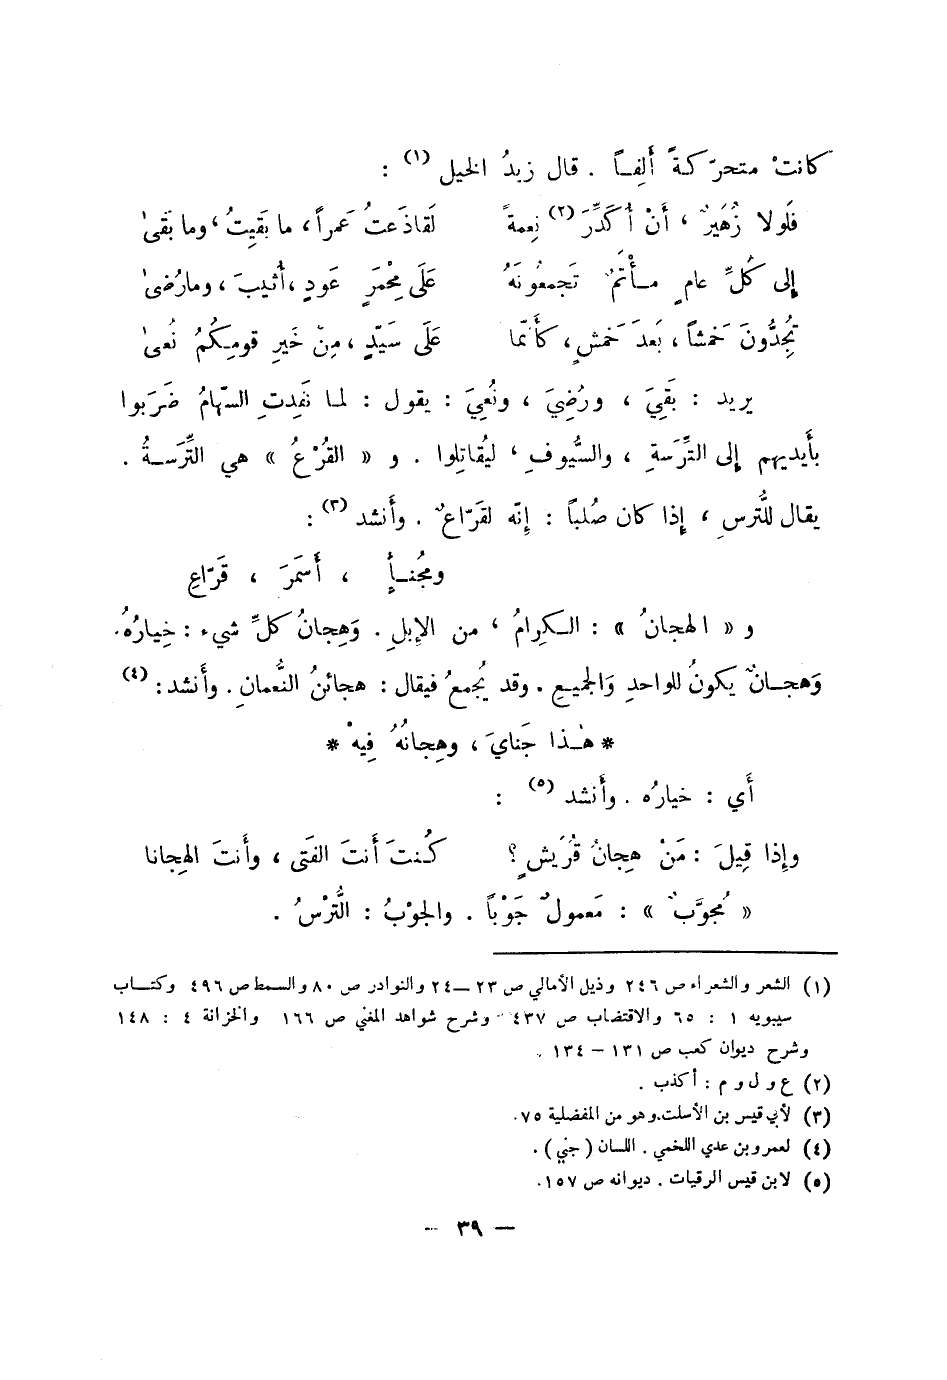 كانتْ متحرّكةً أَلِفاً . قال زيدُ الخيل (١) :
فَلَولا زُهَيرٌ ، أَنْ أُكَدِّرَ (٢) نِعمةً    لَقاذَعتُ عَمراً ، ما بَقِيتُ ، وما بَقَىٰ
إلى كُلِّ عامٍ مأْتَمٌ تَجمعُونَهُ    عَلَى مِحْمَرٍ عَودٍ ، أُثيبَ ، وما رُضىٰ
تُجِدُّونَ خَمشاً ، بَعدَ خَمشٍ ، كأَنّما    عَلَى سَيّدٍ ، مِنْ خَيرِ قومِكُمُ نُعىٰ
يريد : بَقِيَ ، ورُضِيَ ، ونُعِيَ : يقول : لما نَفِدتِ السّهامُ ضَرَبوا
بأَيديهم إلى التِّرَسةِ ، والسُّيوفِ ، ليُقاتِلوا . و « القُرْعُ » هي التِّرَسةُ .
يقال للتُّرسِ ، إذا كان صُلباً : إنّه لقَرّاعٌ . وأَنشد (٣) :
ومُجْنأٍ ، أَسمَرَ ، قَرّاعِ
و « الهجانُ » : الكِرامُ ، من الإبلِ . وَهِجانُ كلِّ شيء : خِيارُهُ .
وَهجانٌ يكونُ للواحدِ وَالجميعِ . وقد يُجمعُ فيقال : هجائنُ النُّعمانِ . وأَنشد : (٤)
* هٰذا جَنايَ ، وهِجانُهُ فِيهْ *
أَي : خيارُه . وأَنشد (٥) :
وإِذا قِيلَ : مَنْ هِجانُ قُرَيشٍ ؟    كُنتَ أَنتَ الفَتى ، وأَنتَ الهِجانا
« مُجوَّبٌ » : مَعمولٌ جَوْباً . والجوْبُ : التُّرْسُ .
(١) الشعر والشعراء ص ٢٤٦ وذيل الأمالي ص ٢٣ – ٢٤ والنوادر ص ٨٠ والسمط ص ٤٩٦ وكتاب
سيبويه ١ : ٦٥ والاقتضاب ص ٤٣٧ وشرح شواهد المغني ص ١٦٦ والخزانة ٤ : ١٤٨
وشرح ديوان كعب ص ١٣١ – ١٣٤ .
(٢) ع و ل و م : أكذب .
(٣) لأبي قيس بن الأسلت . وهو من المفضلية ٧٥ .
(٤) لعمرو بن عدي اللخمي . اللسان ( جني ) .
(٥) لابن قيس الرقيات . ديوانه ص ١٥٧ .
– ٣٩ –